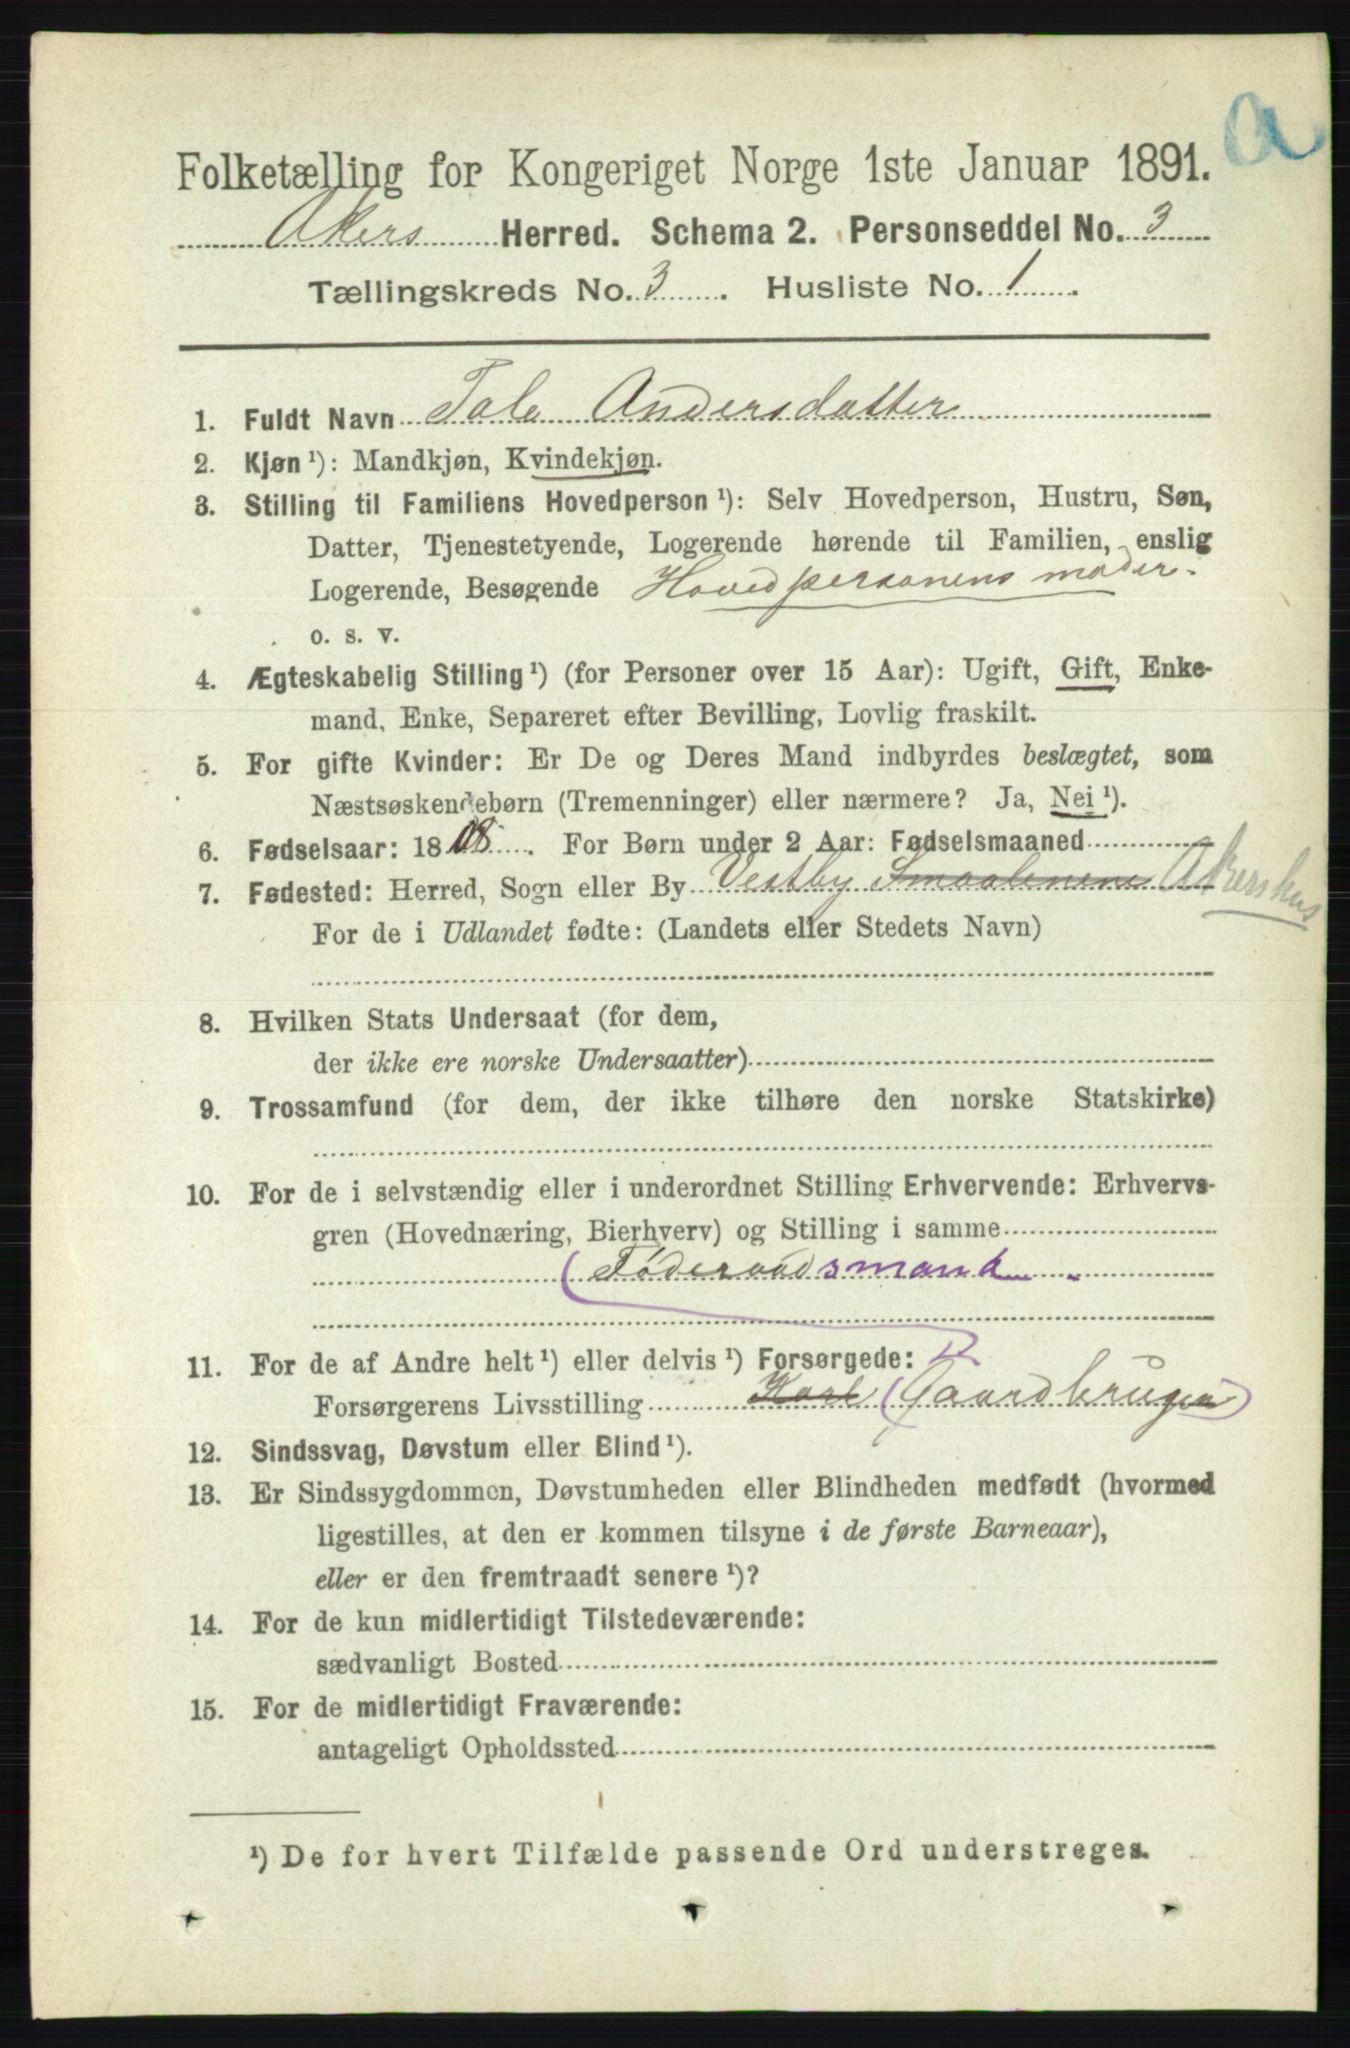 a
Folketælling for Kongeriget Norge 1ste Januar 1891.
Akers Herred. Schema 2. Personseddel No. 3
Tællingskreds No. 3. Husliste No. 1.
1. Fuldt Navn Tale Andersdatter
2. Kjøn¹): Mandkjøn, Kvindekjøn.
3. Stilling til Familiens Hovedperson¹): Selv Hovedperson, Hustru, Søn,
Datter, Tjenestetyende, Logerende hørende til Familien, enslig
Logerende, Besøgende Hovedpersonens moder.
o. s. v.
4. Ægteskabelig Stilling¹) (for Personer over 15 Aar): Ugift, Gift, Enke-
mand, Enke, Separeret efter Bevilling, Lovlig fraskilt.
5. For gifte Kvinder: Er De og Deres Mand indbyrdes beslægtet, som
Næstsøskendebørn (Tremenninger) eller nærmere? Ja, Nei¹).
6. Fødselsaar: 1808. For Børn under 2 Aar: Fødselsmaaned
7. Fødested: Herred, Sogn eller By Vestby Smaalenene Akershus
For de i Udlandet fødte: (Landets eller Stedets Navn)
8. Hvilken Stats Undersaat (for dem,
der ikke ere norske Undersaatter)
9. Trossamfund (for dem, der ikke tilhøre den norske Statskirke)
10. For de i selvstændig eller i underordnet Stilling Erhvervende: Erhvervs-
gren (Hovednæring, Bierhverv) og Stilling i samme
(Føderaadsmand
11. For de af Andre helt¹) eller delvis¹) Forsørgede:
Forsørgerens Livsstilling (Gaardbruger)
12. Sindssvag, Døvstum eller Blind¹).
13. Er Sindssygdommen, Døvstumheden eller Blindheden medfødt (hvormed
ligestilles, at den er kommen tilsyne i de første Barneaar),
eller er den fremtraadt senere¹)?
14. For de kun midlertidigt Tilstedeværende:
sædvanligt Bosted
15. For de midlertidigt Fraværende:
antageligt Opholdssted
¹) De for hvert Tilfælde passende Ord understreges.